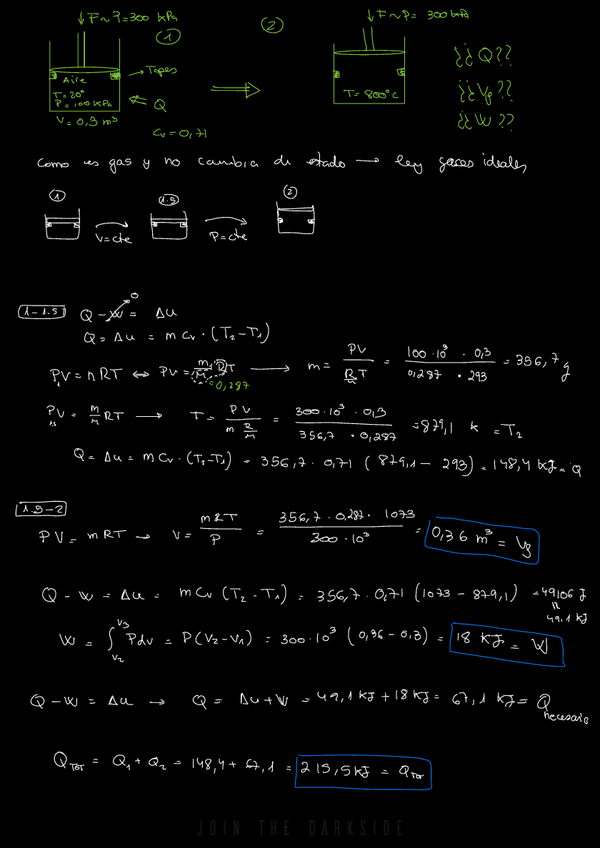 ↓F ~ P=300 kPa
①
②
↓F ~ P= 300 kPa
Aire
→ Topes
T=20°
P=100 kPa
← Q
V = 0,3 m³
Cv = 0,71
⟹
T=800°C
¿¿ Q??
¿¿ Vf ??
¿¿ W ??
Como es gas y no cambia de estado → ley gases ideales
① 1.5 ②
V=cte P=cte
1-1.5 Q - W = Δu
0
Q = Δu = m Cv · (T2-T1)
PV = nRT ⟺ PV = m/M RT → m = PV / (R/M T) = 100·10³ · 0,3 / 0,287 · 293 = 356,7 g
=0,287
PV = m/M RT → T = PV / (m R/M) = 300·10³ · 0,3 / 356,7 · 0,287 = 879,1 K = T2
Q = Δu = m Cv · (T2-T1) = 356,7 · 0,71 (879,1 - 293) = 148,4 KJ = Q
1.5-2
PV = mRT → V = mRT / P = 356,7 · 0,287 · 1073 / 300·10³ = 0,36 m³ = Vf
Q - W = Δu = m Cv (T2 - T1) = 356,7 · 0,71 (1073 - 879,1) = 49106 J
49,1 KJ
W = ∫ V2 V3 P dv = P(V2-V1) = 300·10³ (0,36 - 0,3) = 18 KJ = W
Q - W = Δu → Q = Δu + W = 49,1 KJ + 18 KJ = 67,1 KJ = Q necesario
QTOT = Q1 + Q2 = 148,4 + 67,1 = 215,5 KJ = QTOT
JOIN THE DARKSIDE